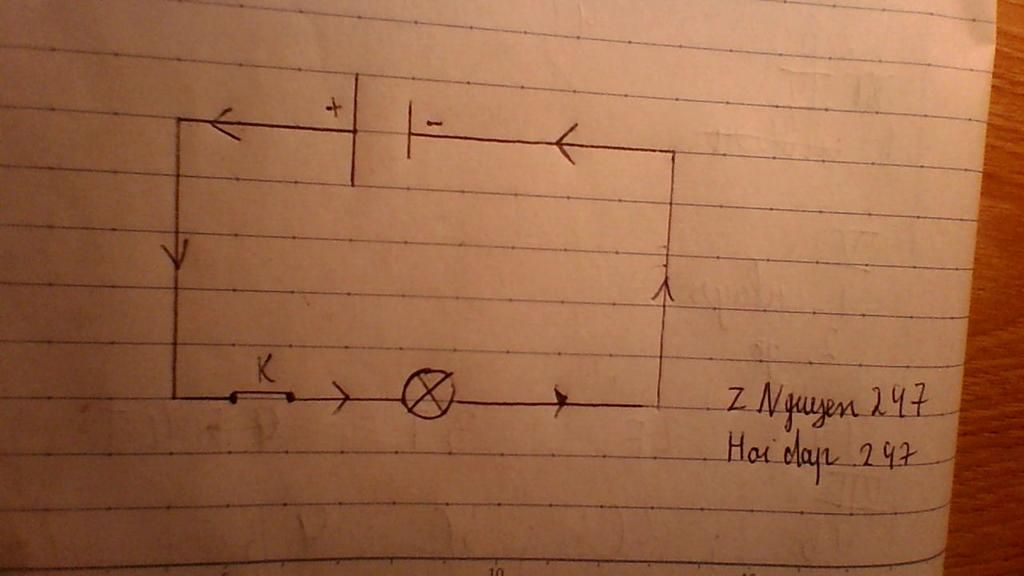 + -
K
Z Nguyen 247
Hoi dap 247